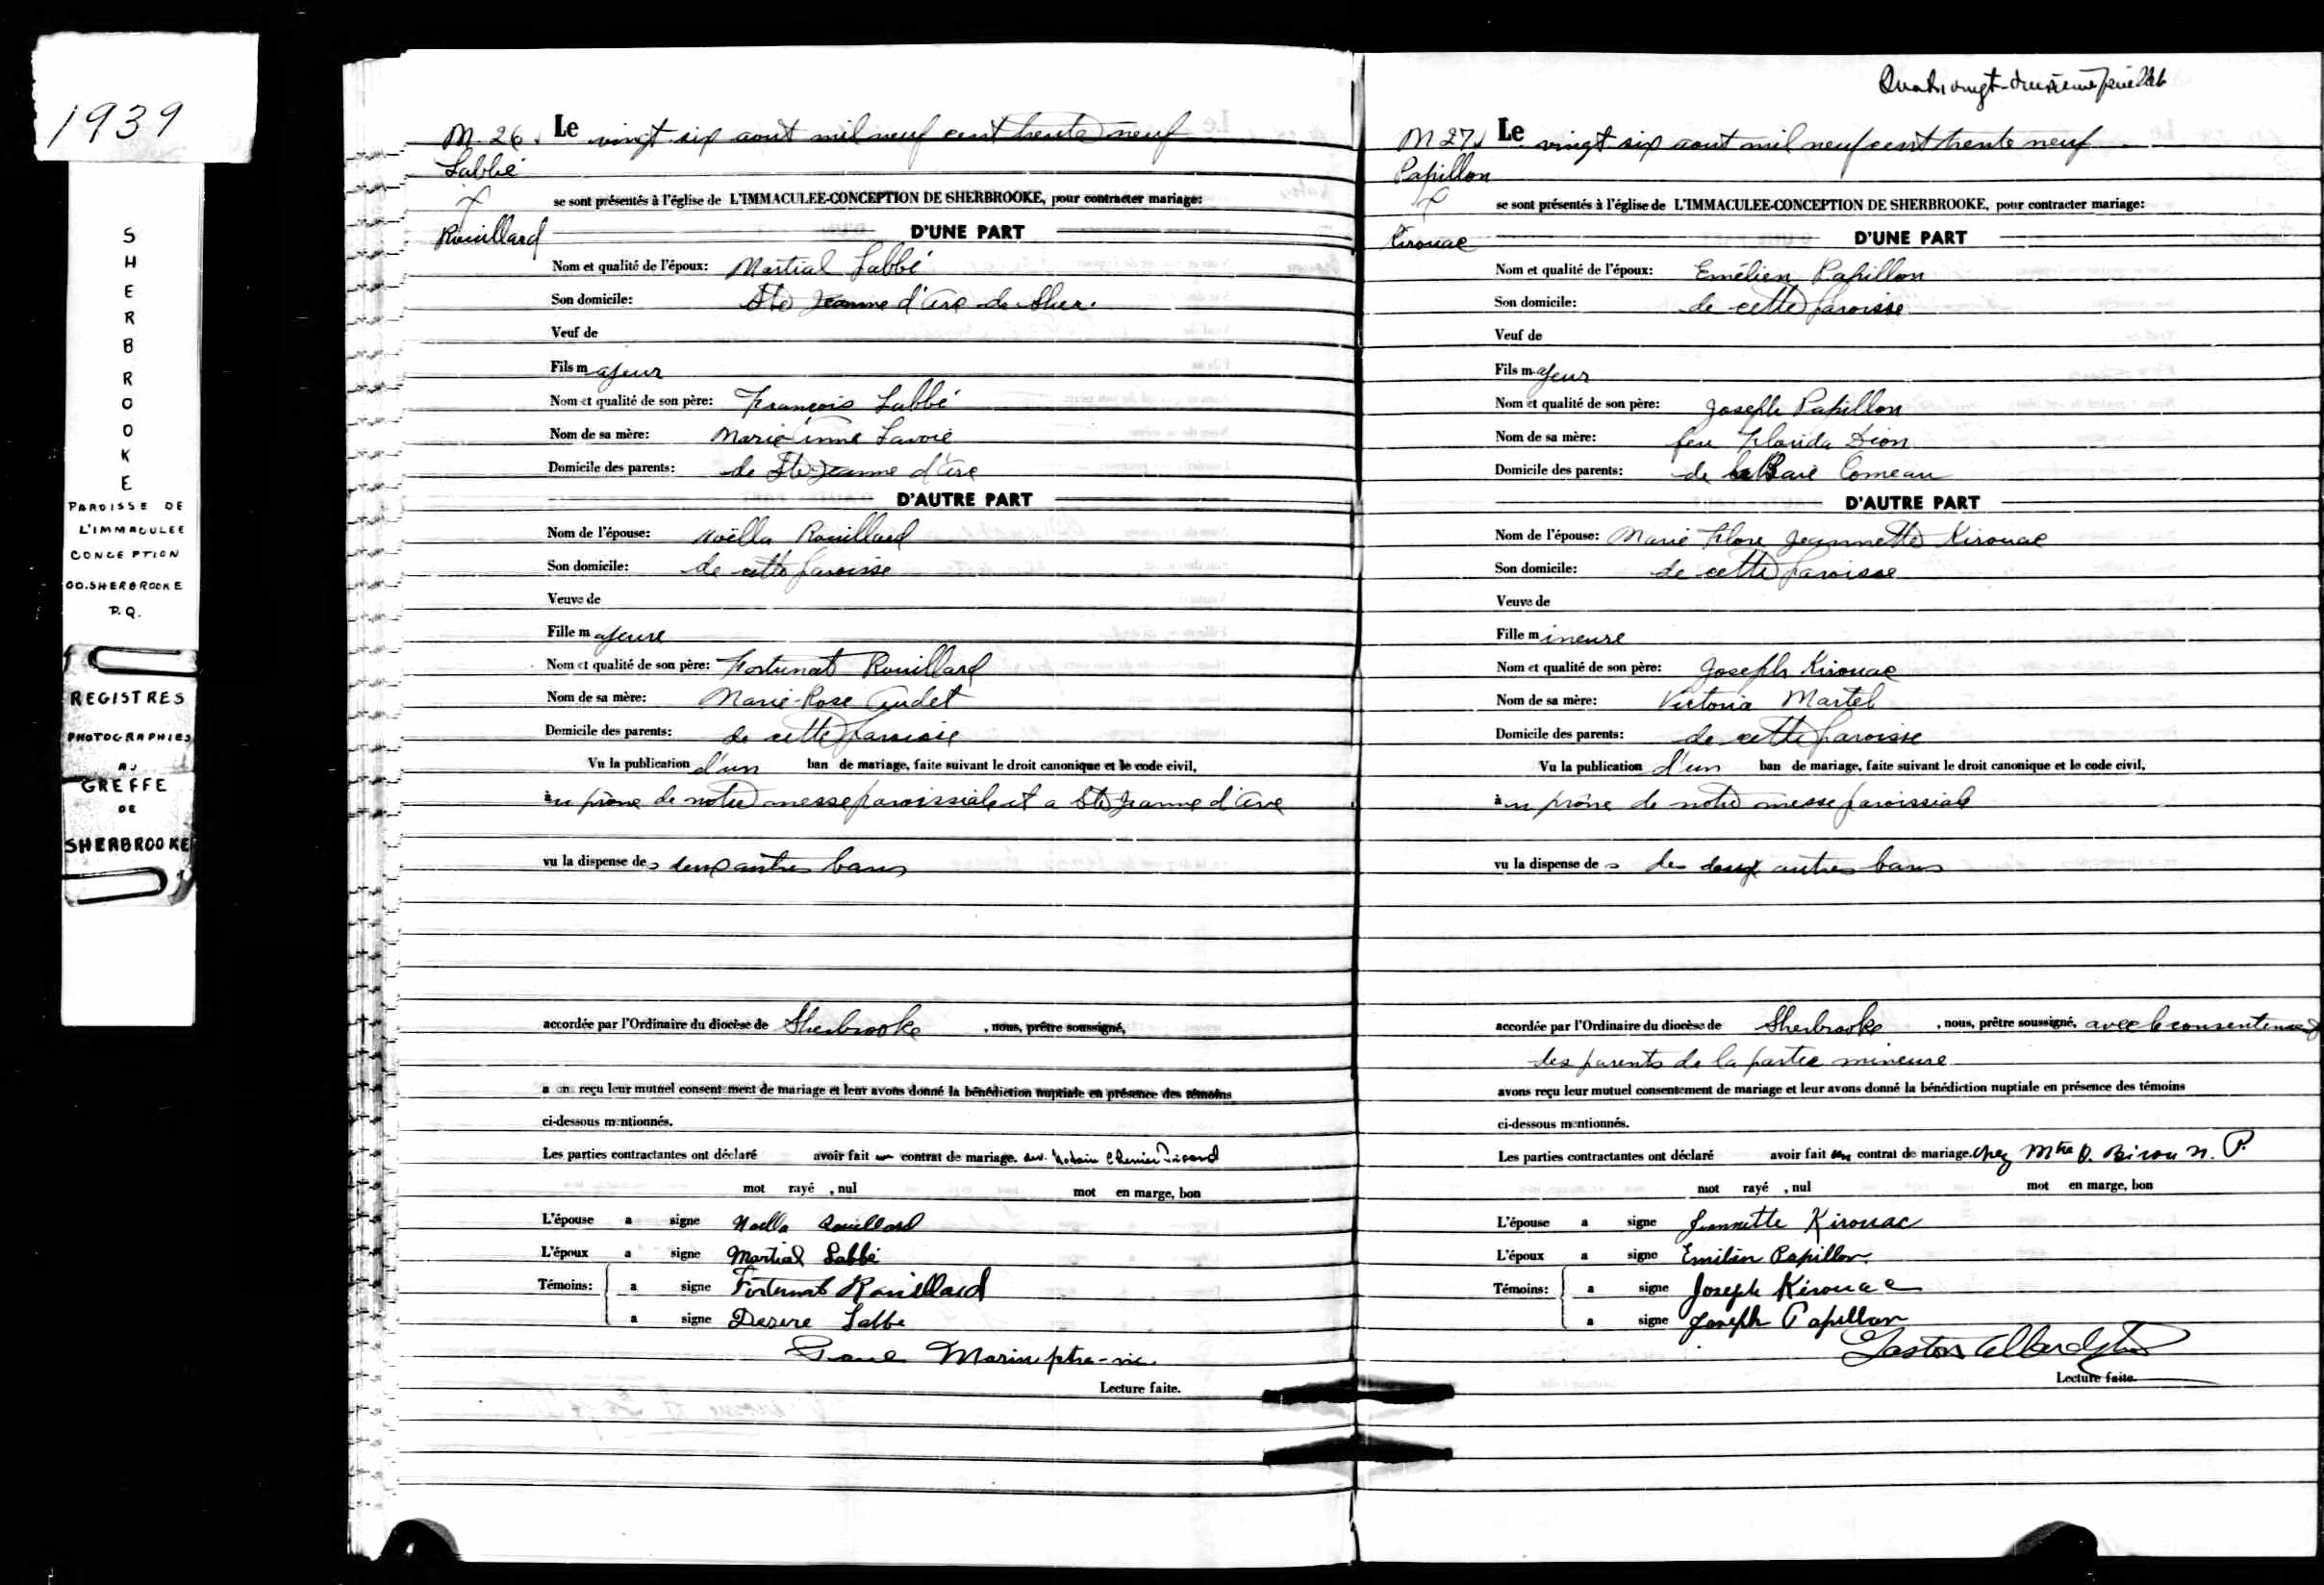 1939
SHERBROOKE
PAROISSE DE
L'IMMACULEE
CONCEPTION
CO. SHERBROOKE
P.Q.
REGISTRES
PHOTOGRAPHIES
AU
GREFFE
DE
SHERBROOKE
M. 26.
Labbé
&
Rouillard
Le vingt six aout mil neuf cent trente neuf
se sont présentés à l'église de L'IMMACULEE-CONCEPTION DE SHERBROOKE, pour contracter mariage:
D'UNE PART
Nom et qualité de l'époux: Martial Labbé
Son domicile: Ste Jeanne d'Arc de Sher.
Veuf de
Fils majeur
Nom et qualité de son père: François Labbé
Nom de sa mère: Marie-Anne Lavoie
Domicile des parents: de Ste-Jeanne d'Arc
D'AUTRE PART
Nom de l'épouse: Noëlla Rouillard
Son domicile: de cette paroisse
Veuve de
Fille majeure
Nom et qualité de son père: Fortunat Rouillard
Nom de sa mère: Marie-Rose Audet
Domicile des parents: de cette paroisse
Vu la publication d'un ban de mariage, faite suivant le droit canonique et le code civil,
au prône de notre messe paroissiale et a Ste Jeanne d'Arc
vu la dispense des deux autres bans
accordée par l'Ordinaire du diocèse de Sherbrooke , nous, prêtre soussigné,
avons reçu leur mutuel consentement de mariage et leur avons donné la bénédiction nuptiale en présence des témoins
ci-dessous mentionnés.
Les parties contractantes ont déclaré avoir fait un contrat de mariage. dev. Notaire
mot rayé , nul mot en marge, bon
L'épouse a signé Noella Rouillard
L'époux a signé Martial Labbé
Témoins: a signé Fortunat Rouillard
a signé Desire Labbe
Paul Marin ptre-vic.
Lecture faite.
Quatre vingt-deuxième feuillet
M 27.
Papillon
&
Kirouac
Le vingt six aout mil neuf cent trente neuf
se sont présentés à l'église de L'IMMACULEE-CONCEPTION DE SHERBROOKE, pour contracter mariage:
D'UNE PART
Nom et qualité de l'époux: Emélien Papillon
Son domicile: de cette paroisse
Veuf de
Fils majeur
Nom et qualité de son père: Joseph Papillon
Nom de sa mère: feu Florida Dion
Domicile des parents: de la Baie Comeau
D'AUTRE PART
Nom de l'épouse: Marie Flore Jeannette Kirouac
Son domicile: de cette paroisse
Veuve de
Fille mineure
Nom et qualité de son père: Joseph Kirouac
Nom de sa mère: Victoria Martel
Domicile des parents: de cette paroisse
Vu la publication d'un ban de mariage, faite suivant le droit canonique et le code civil,
au prône de notre messe paroissiale
vu la dispense des des deux autres bans
accordée par l'Ordinaire du diocèse de Sherbrooke , nous, prêtre soussigné, avec le consentement
des parents de la partie mineure
avons reçu leur mutuel consentement de mariage et leur avons donné la bénédiction nuptiale en présence des témoins
ci-dessous mentionnés.
Les parties contractantes ont déclaré avoir fait un contrat de mariage. chez Mtre O. Biron N. P.
mot rayé , nul mot en marge, bon
L'épouse a signé Jeannette Kirouac
L'époux a signé Emilien Papillon
Témoins: a signé Joseph Kirouac
a signé Joseph Papillon
Gaston Allard ptre
Lecture faite.